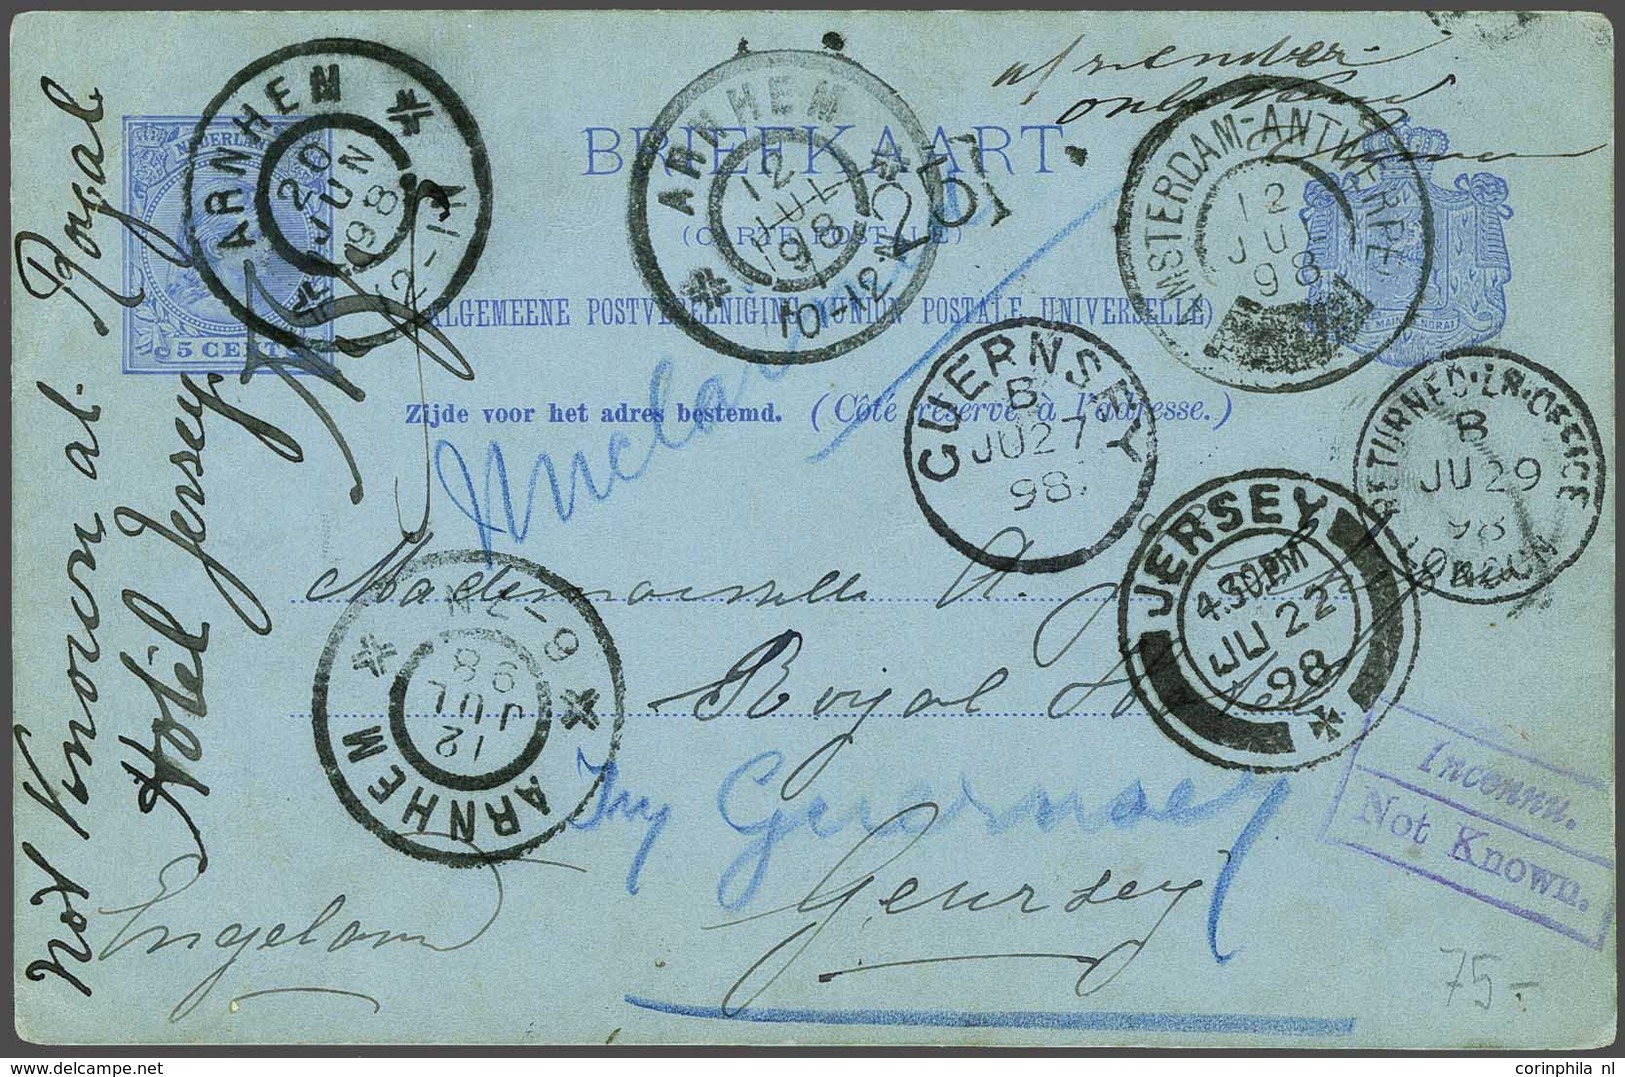 afzender
onbekend
BRIEFKAART
(CARTE POSTALE)
ALGEMEENE POSTVEREENIGING (UNION POSTALE UNIVERSELLE)
Zijde voor het adres bestemd. (Côté réservé à l'adresse.)
NEDERLAND
5 CENT
ARNHEM
20
JUN
98
12-1N
ARNHEM
12
JUL
98
10-12V
[25]
AMSTERDAM-ANTWERPEN
12
JUL
98
GUERNSEY
B
JU 27
98
RETURNED LR. OFFICE
B
JU 29
98
LONDON
JERSEY
4.30PM
JU 22
98
ARNHEM
12
JUL
98
6-7
Mademoiselle A.
Royal Hotel
Try Guernsey
Geursey
Engeland
Not Known at Royal
Hotel Jersey
Inconnu.
Not Known.
75-
corinphila nl